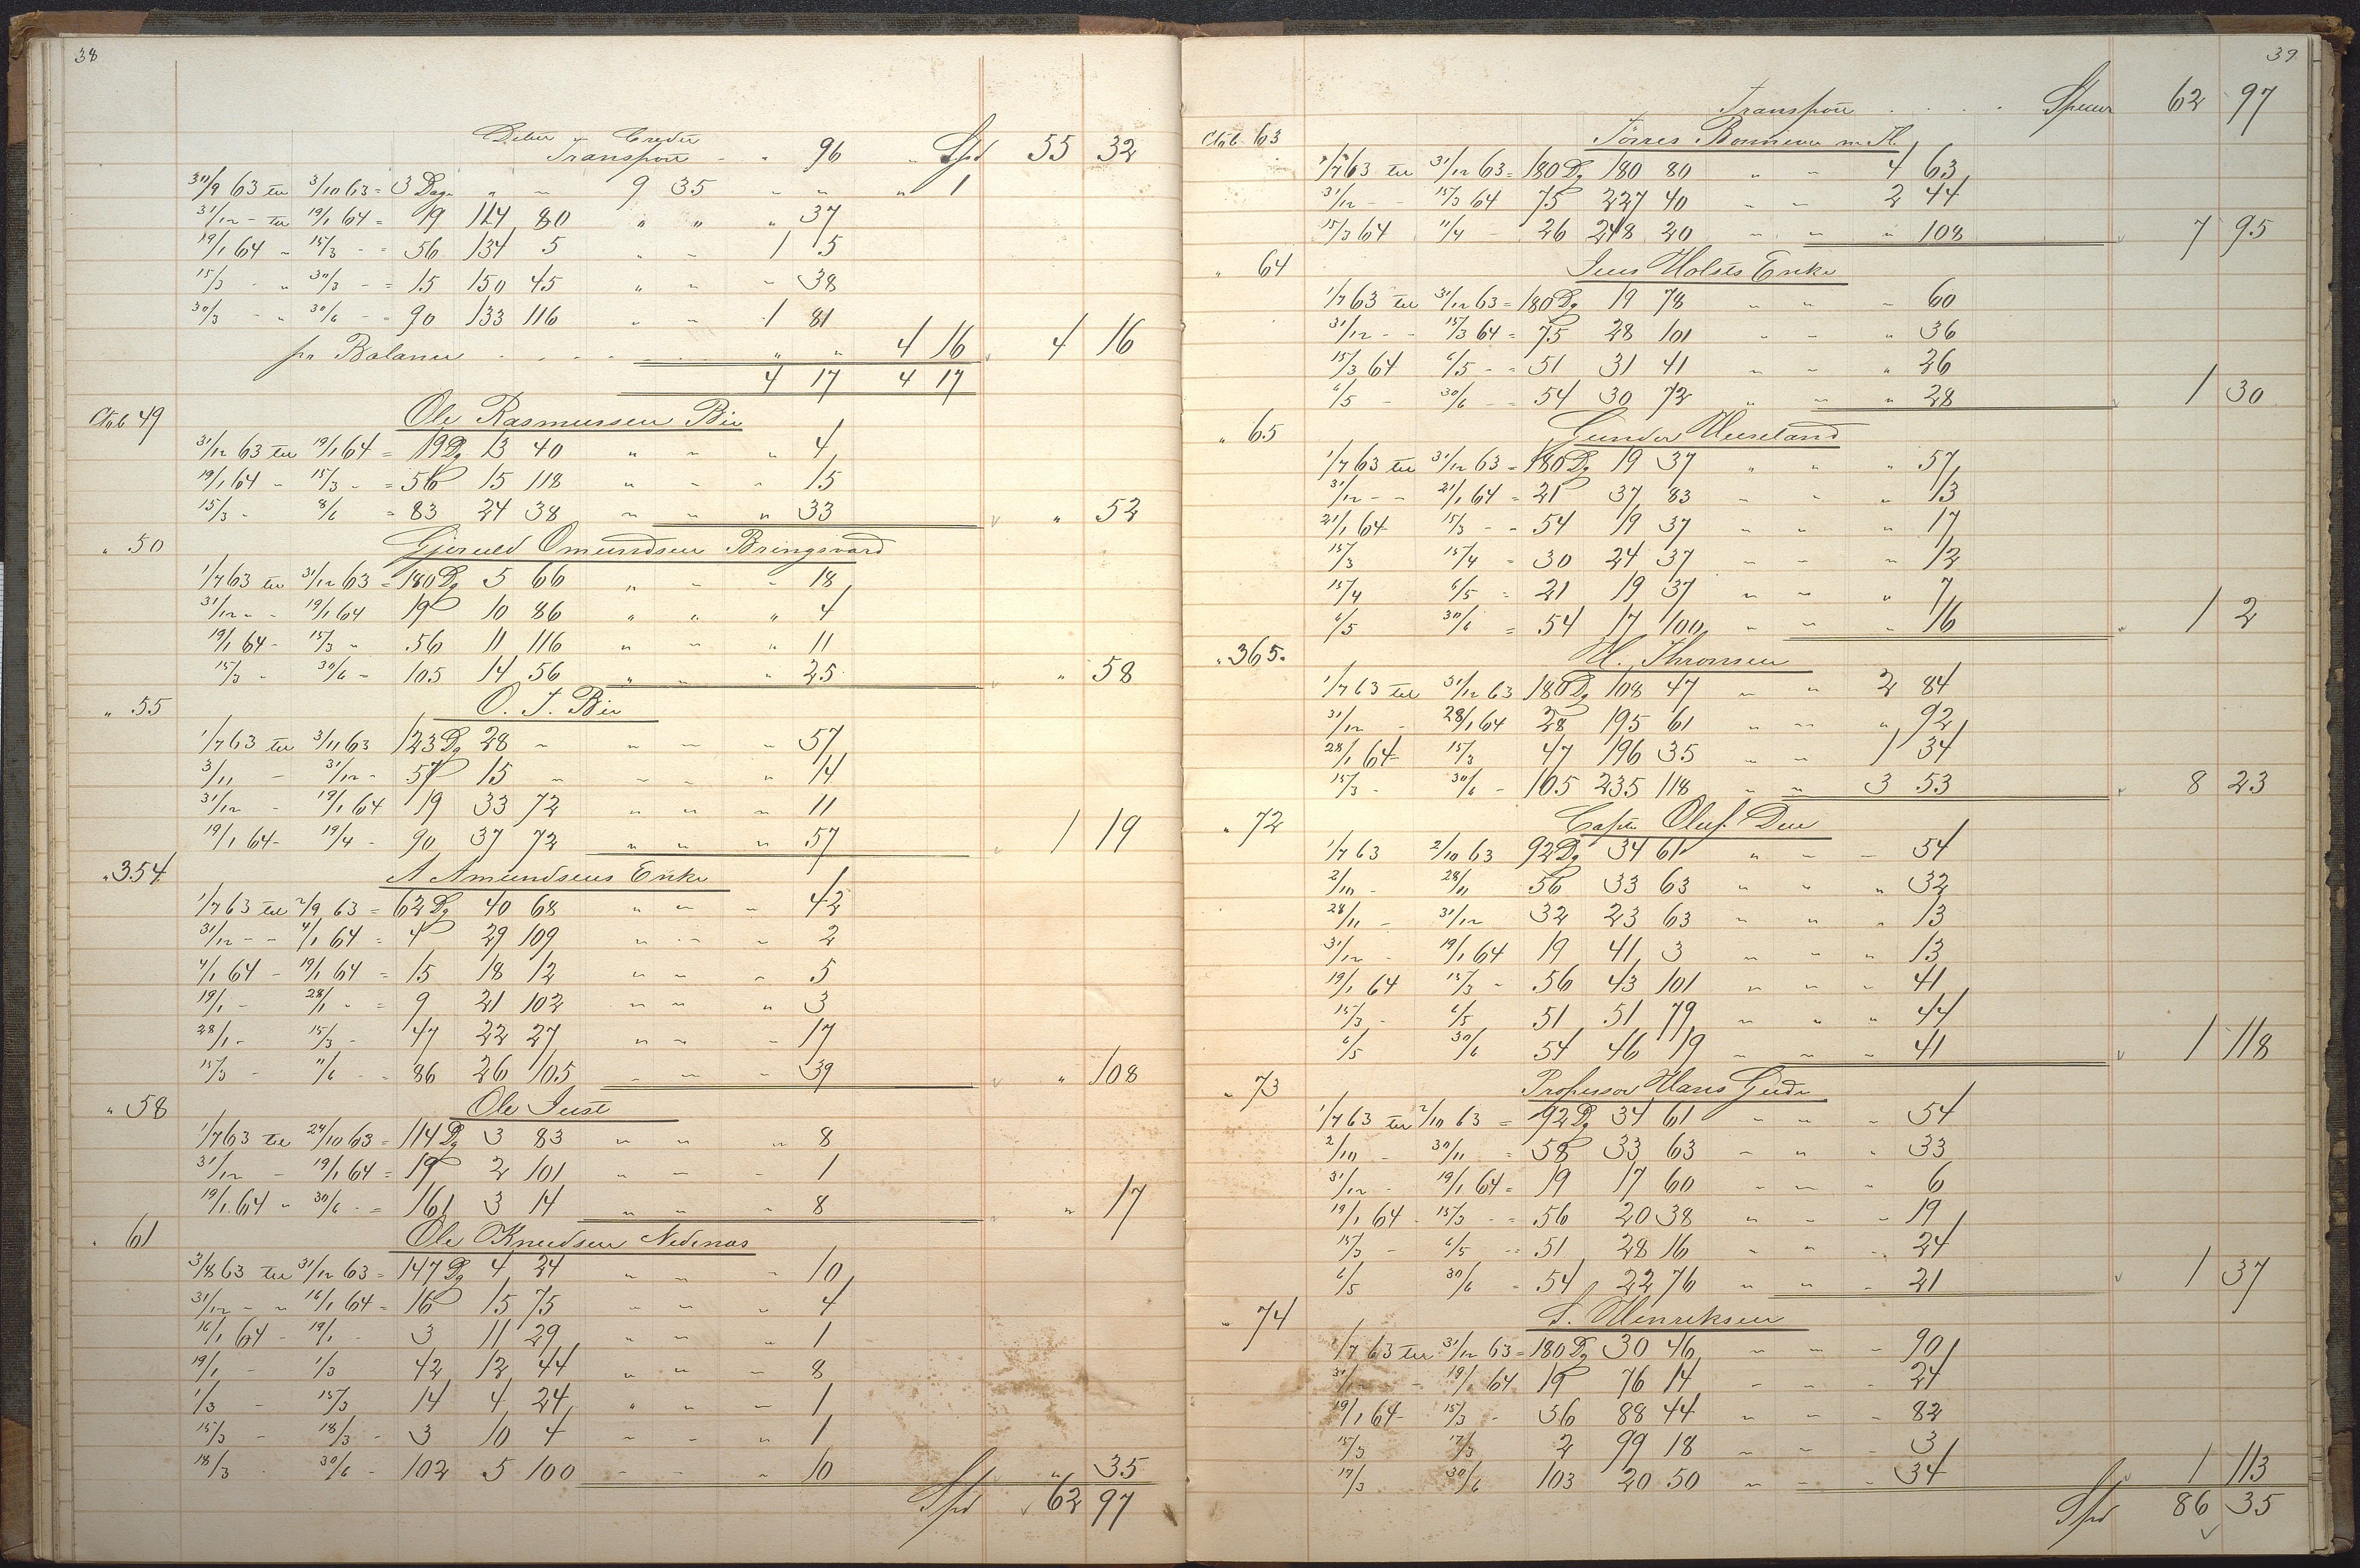 38
Debit Credit
Transport - - 96 - Spd 55 32
30/9 63 til 3/10 63 = 3 Dage " - 9 35 " " " 1
31/12 - til 19/1 64 = 19 114 80 " " " 37
19/1 64 - 15/3 - = 56 134 5 " - 1 5
15/3 - " 30/3 - = 15 150 45 " - - 38
30/3 - " 30/6 - = 90 133 116 " - 1 81
pr Balance . . . . " " 4 16 4 16
4 17 4 17
Ctob 49 Ole Rasmussen Bie
31/12 63 til 19/1 64 = 19 Dg 13 40 " - " 4
19/1 64 - 15/3 - = 56 15 118 " - - 15
15/3 - 8/6 = 83 24 38 - - " 33 " 52
" 50 Gjeruld Omundsen Bringsvard
1/7 63 til 31/12 63 = 180 Dg 5 66 " - - 18
31/12 - - 19/1 64 19 10 86 " " " 4
19/1 64 - 15/3 - 56 11 116 " - " 11
15/3 - 30/6 - 105 14 56 " - " 25 " 58
" 55 O. T. Bie
1/7 63 til 3/11 63 123 Dg 28 - - - - 57
3/11 - 31/12 - 57 15 - - - " 14
31/12 - 19/1 64 19 33 72 " " - 11
19/1 64 - 19/4 - 90 37 72 " " " 57 1 19
" 354 A Amundsens Enke
1/7 63 til 2/9 63 = 62 Dg 40 68 " - - 42
31/12 - - 4/1 64 = 4 29 109 - - - 2
4/1 64 - 19/1 64 = 15 18 12 " - - 5
19/1 - 28/1 - = 9 21 102 - - " 3
28/1 - 15/3 - 47 22 27 " - - 17
15/3 - 11/6 - - 86 26 105 - - - 39 " 108
" 58 Ole Just
1/7 63 til 24/10 63 = 114 Dg 3 83 - - " 8
31/12 - 19/1 64 = 19 2 101 - - - 1
19/1 64 - 30/6 - = 161 3 14 - - - 8 " 17
" 61 Ole Knudsen Nedenæs
3/8 63 til 31/12 63 = 147 Dg 4 24 " - - 10
31/12 - - 16/1 64 = 16 15 75 - - - 4
16/1 64 - 19/1 - 3 11 29 " - - 1
19/1 - 1/3 42 12 44 " " - 8
1/3 - 15/3 14 4 24 " " - 1
15/3 - 18/3 - 3 10 4 - - " 1
18/3 - 30/6 - 102 5 100 - - " 10 " 35
Spd 62 97
39
Transport . . . . 62 97
Ctob 63 Tørres
1/7 63 til 31/12 63 = 180 Dg 180 80 " - 4 63
31/12 - - 15/3 64 75 227 40 - - 2 44
15/3 64 11/4 - 26 248 20 - - " 108 7 95
" 64 Jens Holsts Enke
1/7 63 til 31/12 63 = 180 Dg 19 78 - - - 60
31/12 - - 15/3 64 = 75 28 101 - - " 36
15/3 64 6/5 - = 51 31 41 - - " 26
6/5 - 30/6 - = 54 30 72 " - " 28 1 30
" 65 Gunder Huseland
1/7 63 til 31/12 63 = 180 Dg 19 37 " " " 57
31/12 - - 21/1 64 = 21 37 83 - - " 13
21/1 64 15/3 - - 54 19 37 - - " 17
15/3 15/4 = 30 24 37 - - - 12
15/4 6/5 = 21 19 37 - - " 7
6/5 30/6 = 54 17 100 - - - 16 1 2
" 365. H. Thronsen
1/7 63 til 31/12 63 180 Dg 108 47 - - 2 84
31/12 - 28/1 64 28 195 61 - - " 92
28/1 64 - 15/3 47 196 35 - - 1 34
15/3 - 30/6 - 105 235 118 - - 3 53 8 23
" 72 Captn Oluf Due
1/7 63 2/10 63 92 Dg 34 61 " - - 54
2/10 - 28/11 56 33 63 - " " 32
28/11 - 31/12 32 23 63 - " " 13
31/12 - 19/1 64 19 41 3 - - " 13
19/1 64 15/3 - 56 43 101 " - - 41
15/3 - 6/5 51 51 79 - " " 44
6/5 30/6 54 46 19 - - - 41 1 118
" 73 Professor Hans Gude
1/7 63 til 2/10 63 = 92 Dg 34 61 - - - 54
2/10 - 30/11 = 58 33 63 - " " 33
31/12 - 19/1 64 = 19 17 60 - - " 6
19/1 64 - 15/3 - = 56 20 38 " - - 19
15/3 - 6/5 - = 51 28 16 - " - 24
6/5 30/6 - 54 22 76 - - - 21 1 37
" 74 S. Henriksen
1/7 63 til 31/12 63 = 180 Dg 30 46 - - - 90
31/12 - 19/1 64 19 76 14 - - - 24
19/1 64 - 15/3 - 56 88 44 - - - 82
15/3 17/3 2 99 18 - - - 3
17/3 30/6 103 20 50 - - - 34 1 113
Spd 86 35